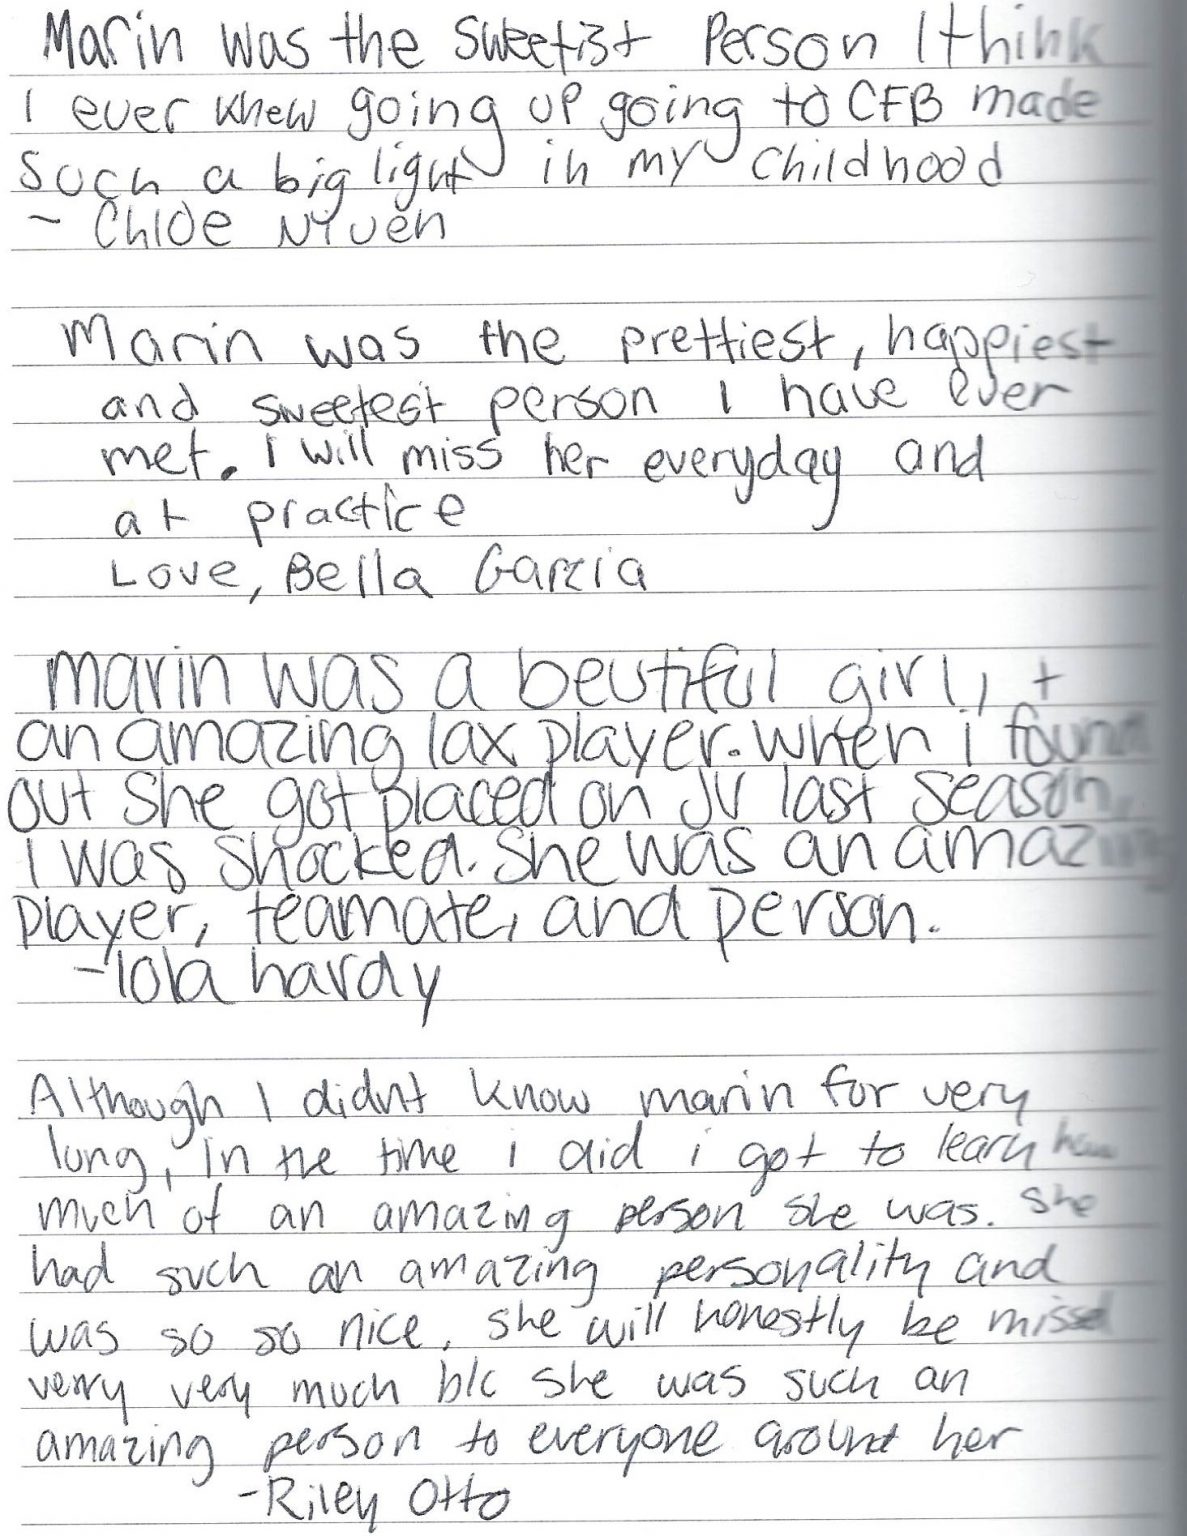 Marin was the sweetist Person I think
I ever knew going up going to CFB made
Such a big light in my childhood
~ Chloe Nyuen
Marin was the prettiest, happiest
and sweetest person I have ever
met. I will miss her everyday and
at practice
Love, Bella Garcia
marin was a beutiful girl, +
an amazing lax player. When i found
out she got placed on JV last season,
I was shocked. She was an amazing
player, teamate, and person.
-Iola hardy
Although I didnt know marin for very
long, in the time i did i got to learn how
much of an amazing person she was. She
had such an amazing personality and
was so so nice, she will honestly be missed
verry very much b/c she was such an
amazing person to everyone around her
-Riley Otto